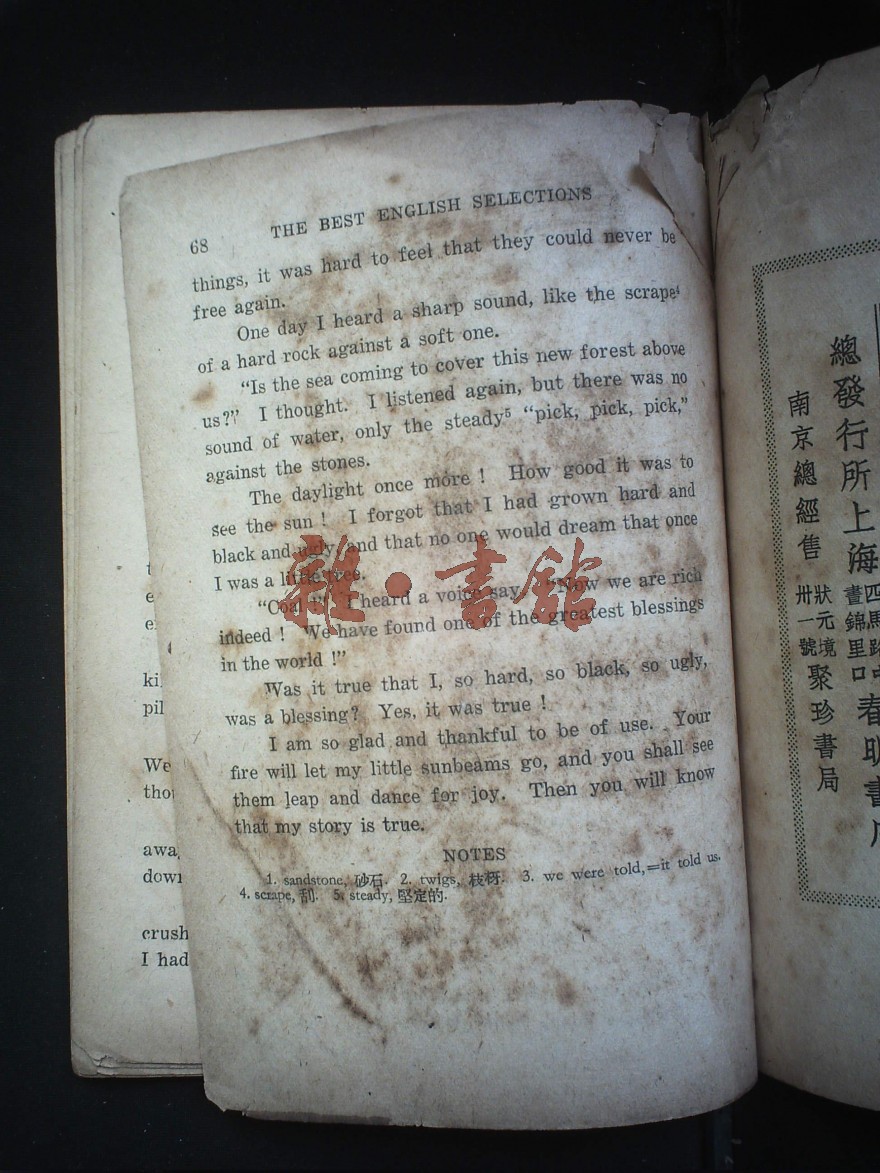 68 THE BEST ENGLISH SELECTIONS
things, it was hard to feel that they could never be
free again.
One day I heard a sharp sound, like the scrape⁴
of a hard rock against a soft one.
“Is the sea coming to cover this new forest above
us?” I thought. I listened again, but there was no
sound of water, only the steady⁵ “pick, pick, pick,”
against the stones.
The daylight once more ! How good it was to
see the sun ! I forgot that I had grown hard and
black and ugly, and that no one would dream that once
I was a little tree.
“Coal !” I heard a voice say, “Now we are rich
indeed ! We have found one of the greatest blessings
in the world !”
Was it true that I, so hard, so black, so ugly,
was a blessing? Yes, it was true !
I am so glad and thankful to be of use. Your
fire will let my little sunbeams go, and you shall see
them leap and dance for joy. Then you will know
that my story is true.
NOTES
1. sandstone, 砂石. 2. twigs, 枝枒. 3. we were told,=it told us.
4. scrape, 刮. 5. steady, 堅定的.
雜·書館
We
crush
I had
總發行所上海
春明書
南京總經售
狀元境
卅一號
聚珍書局
四馬路
晝錦里口